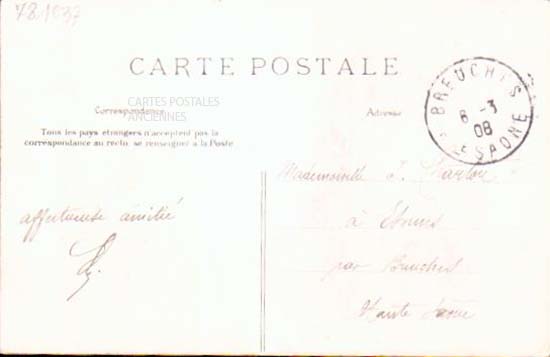 781037
CARTE POSTALE
Correspondance
Adresse
CARTES POSTALES
ANCIENNES
Tous les pays étrangers n'acceptent pas la
correspondance au recto, se renseigner à la Poste
BREUCHES
8 -3
08
Hte SAONE
Mademoiselle J.
affectueuse amitié
à
par Breuches
Haute Saône